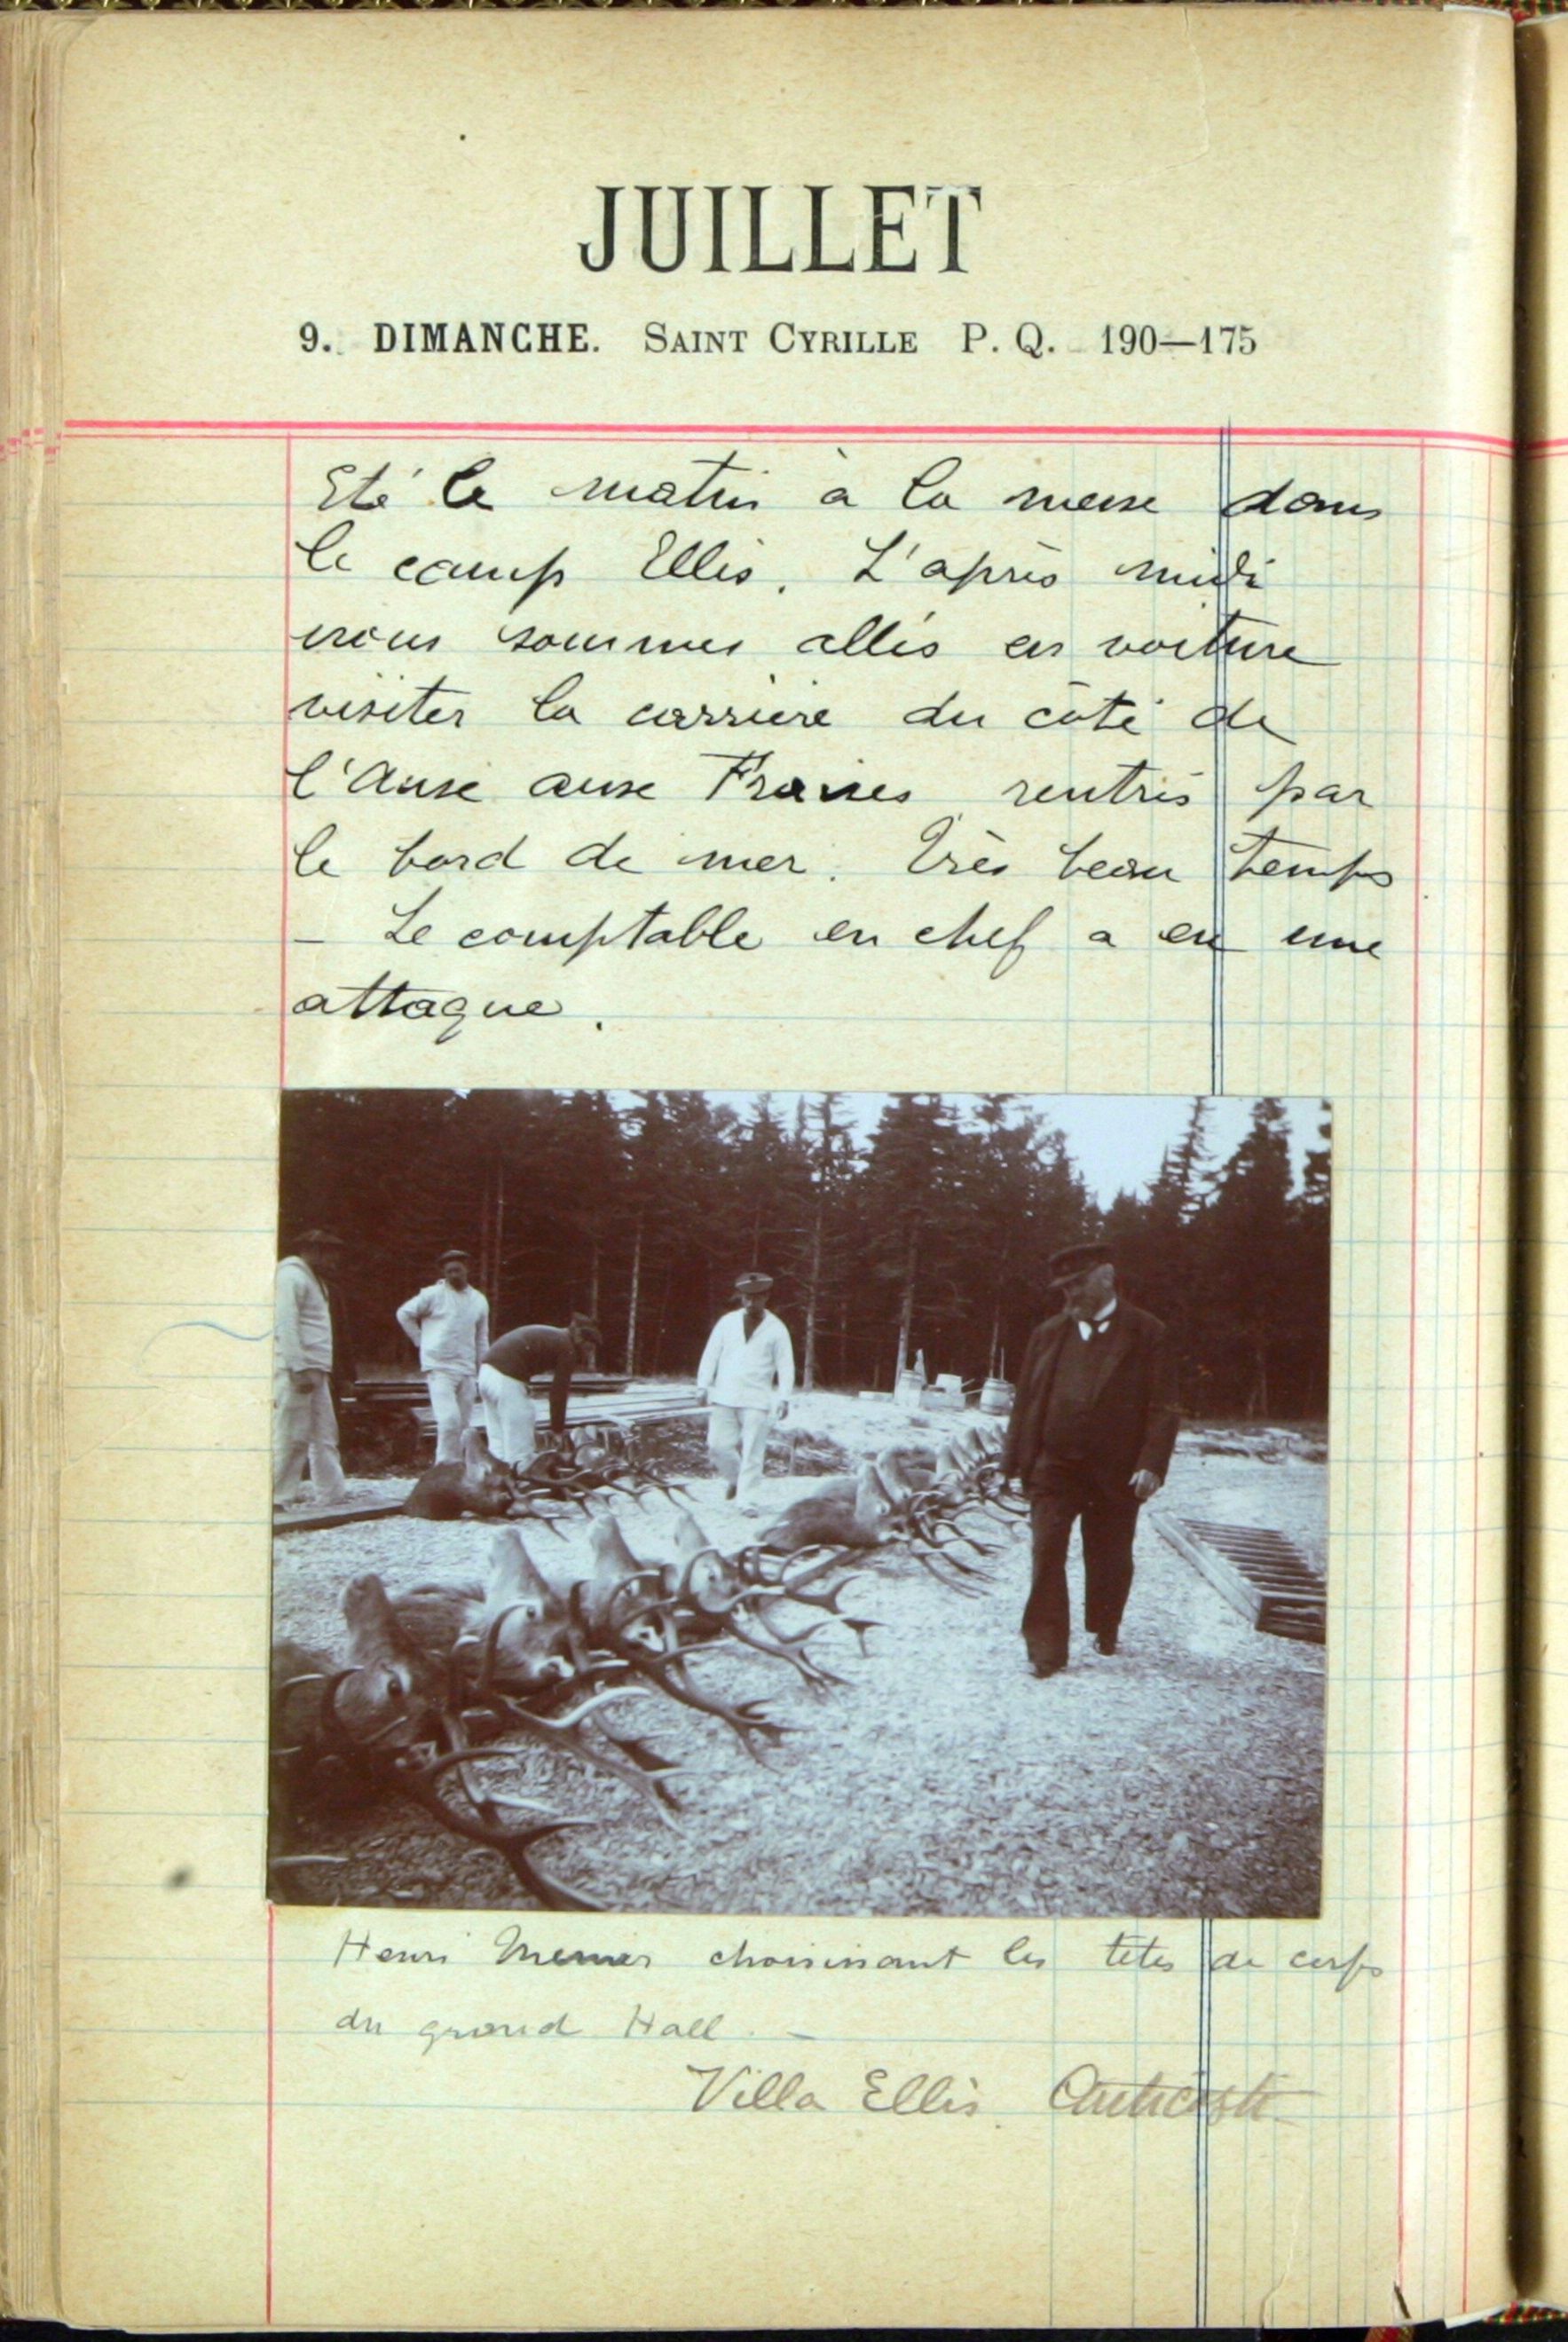 JUILLET
9. DIMANCHE. SAINT CYRILLE P. Q. 190—175
Eté le matin à la messe dans
le camp Ellis. L'après midi
nous sommes allés en voiture
visiter la carrière du côté de
l'Anse aux Fraises rentrés par
le bord de mer. Très beau temps
– Le comptable en chef a eu une
attaque.
Henri Menier choisissant les têtes de cerfs
du grand Hall. –
Villa Ellis. Anticosti